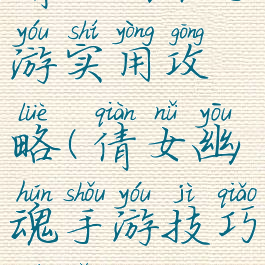 yóu shí yòng gōng
游实用攻
lüè qiàn nǚ yōu
略(倩女幽
hún shǒu yóu jì qiǎo
魂手游技巧